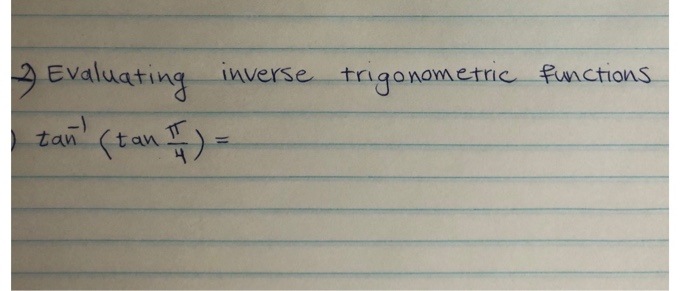 2) Evaluating inverse trigonometric functions
) tan⁻¹ (tan π/4) =